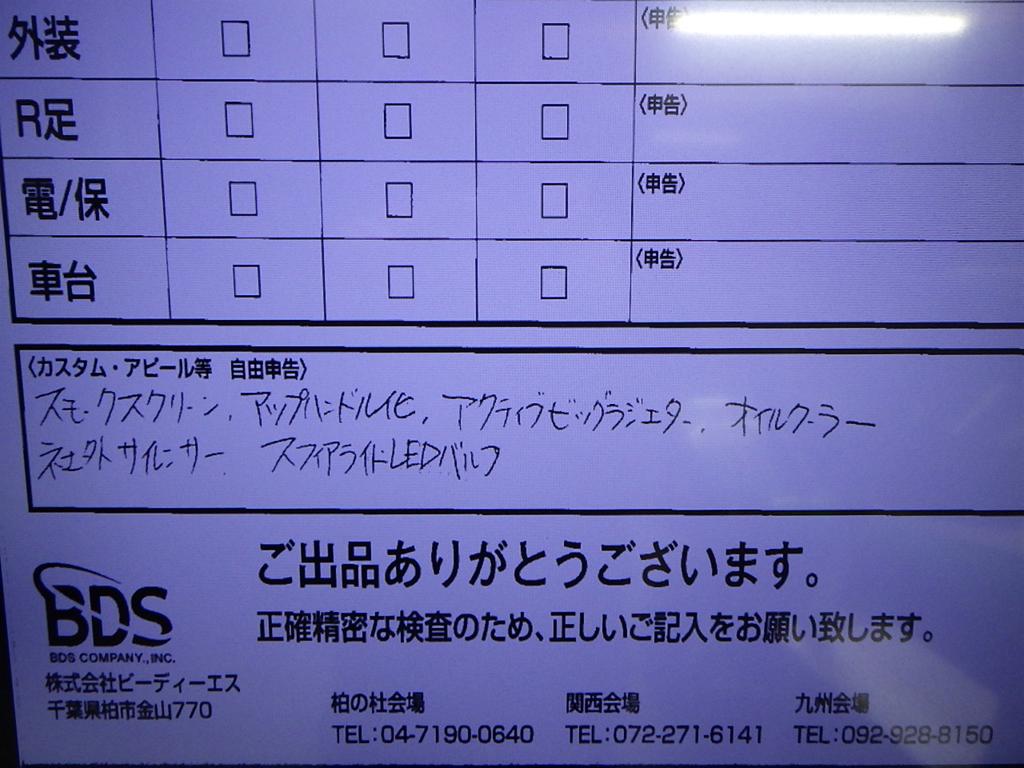 外装 □ □ □ 〈申告〉
R足 □ □ □ 〈申告〉
電/保 □ □ □ 〈申告〉
車台 □ □ □ 〈申告〉
〈カスタム・アピール等 自由申告〉
スモークスクリーン, アップハンドル化, アクティブビッグラジエター, オイルクーラー
社外サイレンサー スフィアライトLEDバルブ
ご出品ありがとうございます。
正確精密な検査のため、正しいご記入をお願い致します。
BDS
BDS COMPANY.,INC.
株式会社ビーディーエス
千葉県柏市金山770
柏の杜会場 関西会場 九州会場
TEL:04-7190-0640 TEL:072-271-6141 TEL:092-928-8150